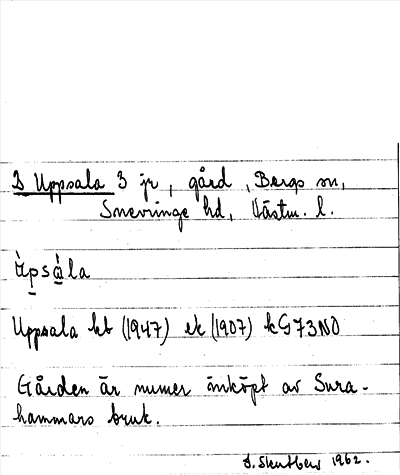 Uppsala 3 jr, gård, Bergs sn,
Snevringe hd, Västm. l.
ùpsàla
Uppsala kt (1947) ek (1907) kG73NO
Gården är numer inköpt av Sura-
hammars bruk.
1962.